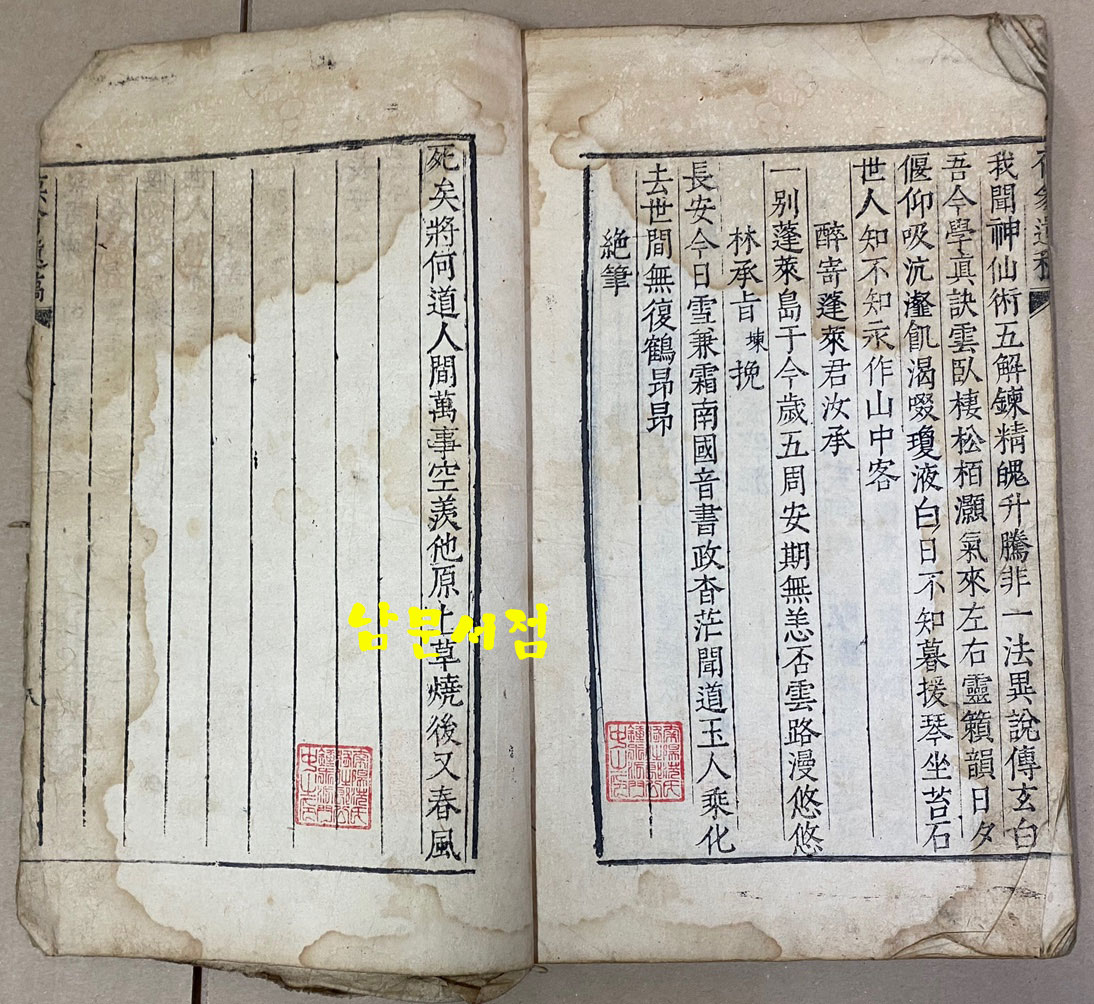 我聞神仙術五解鍊精魄升騰非一法異說傳玄白
吾今學眞訣雲臥棲松栢灝氣來左右靈籟韻日夕
偃仰吸沆瀣飢渴啜瓊液白日不知暮援琴坐苔石
世人知不知永作山中客
醉寄蓬萊君汝承
一別蓬萊島于今歲五周安期無恙否雲路漫悠悠
林承旨 堜 挽
長安今日雪兼霜南國音書政杳茫聞道玉人乘化
去世間無復鶴昂昂
絶筆
死矣將何道人間萬事空羨他原上草燒後又春風
남문서점